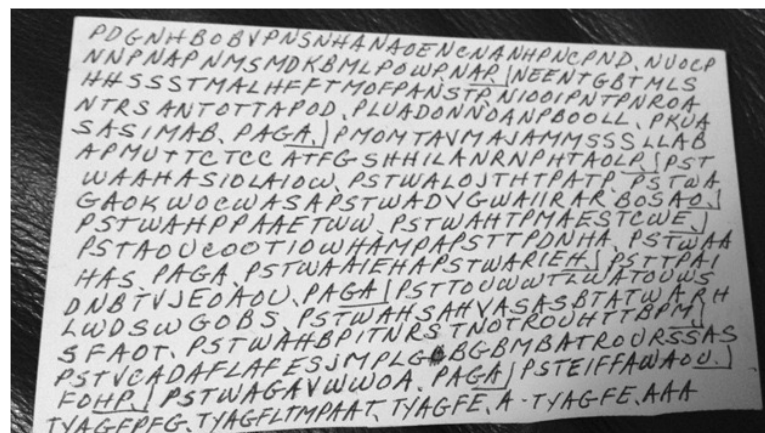 PDGNHBOBVPNSNHANAOENCNANHPNCPND. NUOCP
NNPNAPNMSMDKBMLPOWP. NAP. NEENTGBTMLS
HHSSSTMALHFFTMOFPANSTP. NIOOIPNTPNROA
NTRSANTOTTAPOD. PLUADONNOANPBOOLL. PKUA
SASIMAB. PAGA. PMOMTAVMAJAMMSSSLLAB
APMUTTCTCC ATFGSHHILANRNPHTAOLP. PST
WAAHASIOLAIOW. PSTWALOJTHTPATP. PSTWA
GAOKWOCWASAPSTWADVGWAIIRAR BOSAO.
PSTWAHPPAAETWW. PSTWAHTPMAESTCWE.
PSTAOUCOOTIOWHAMPAPSTTPDNHA. PSTWAA
HAS. PAGA. PSTWAAIEHAPSTWARIEH. PSTTPAI
DNBTVJEOAOU. PAGA PSTTOUWWTLWATOUWS
LWDSWGOBS. PSTWAHSAHVASASBTATWARH
SFAOT. PSTWAHBPITNRSTNOTROUHTTBPM.
PSTVCADAFLAFESJMPLG BGBMBATROURSSAS
FOHP. PSTWAGAVWWOA. PAGA PSTEIFFAWAOU.
TYAGFPFG. TYAGFLTMPAAT. TYAGFE. A-TYAGFE. AAA